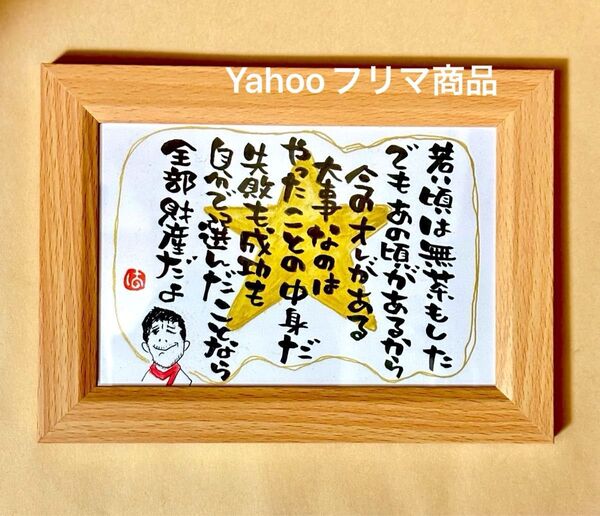 Yahooフリマ商品
若い頃は無茶もした
でもあの頃があるから
今のオレがある
大事なのは
やったことの中身だ
失敗も成功も
自分で選んだことなら
全部財産だよ
は